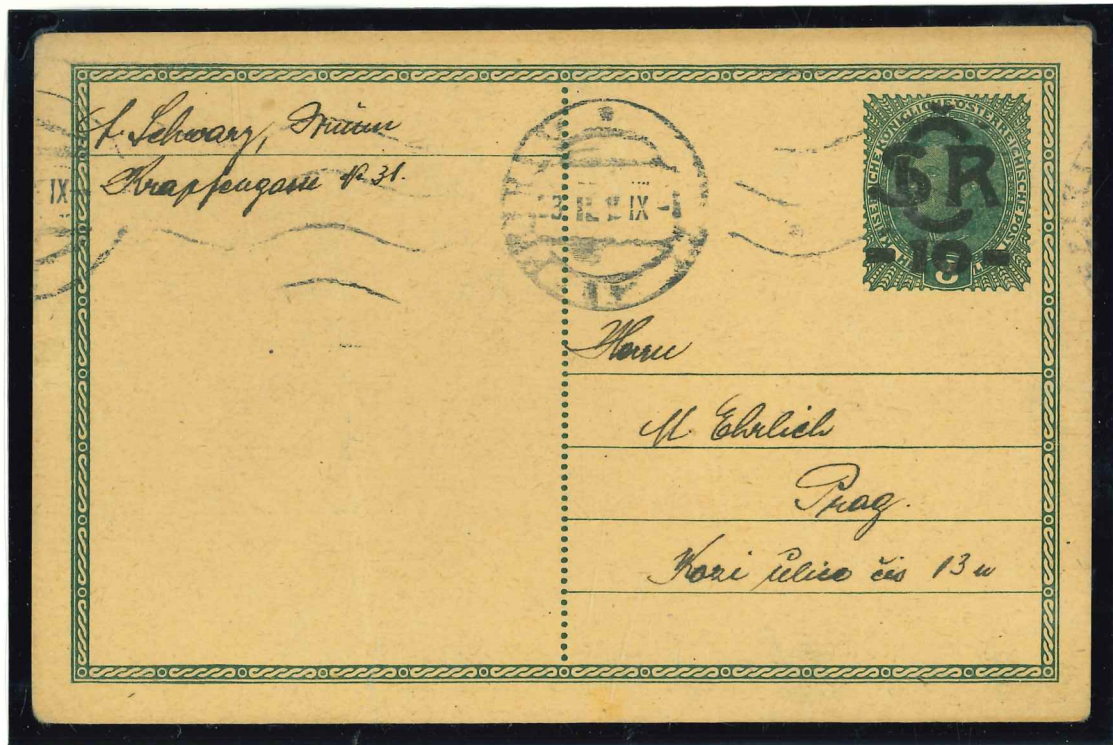 Schwarz, Brünn
Krapfengasse № 31.
IX
IX
KAISERLICHE KÖNIGLICHE ÖSTERREICHISCHE POST
ČSR
-10-
8
Herrn
M Ehrlich
Prag.
Kozi ulice čis 13 n